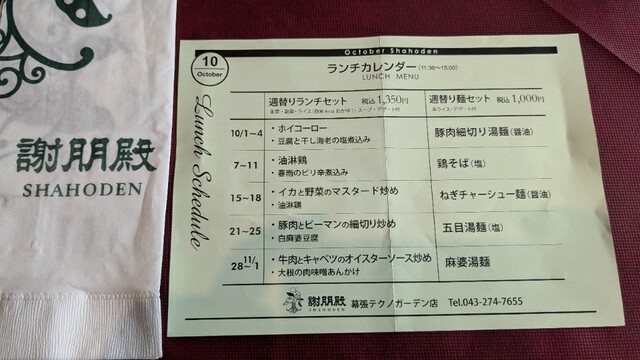 謝朋殿
SHAHODEN
October Shahoden
10
October
ランチカレンダー(11:30～15:00)
LUNCH MENU
Lunch Schedule
週替りランチセット 税込 1,350円
週替り麺セット 税込 1,000円
10/1~4
・ホイコーロー
・豆腐と干し海老の塩煮込み
豚肉細切り湯麺(醤油)
7~11
・油淋鶏
・春雨のピリ辛煮込み
鶏そば(塩)
15~18
・イカと野菜のマスタード炒め
・油淋鶏
ねぎチャーシュー麺(醤油)
21~25
・豚肉とピーマンの細切り炒め
・白麻婆豆腐
五目湯麺(塩)
28~11/1
・牛肉とキャベツのオイスターソース炒め
・大根の肉味噌あんかけ
麻婆湯麺
謝朋殿
SHAHODEN
幕張テクノガーデン店 Tel.043-274-7655